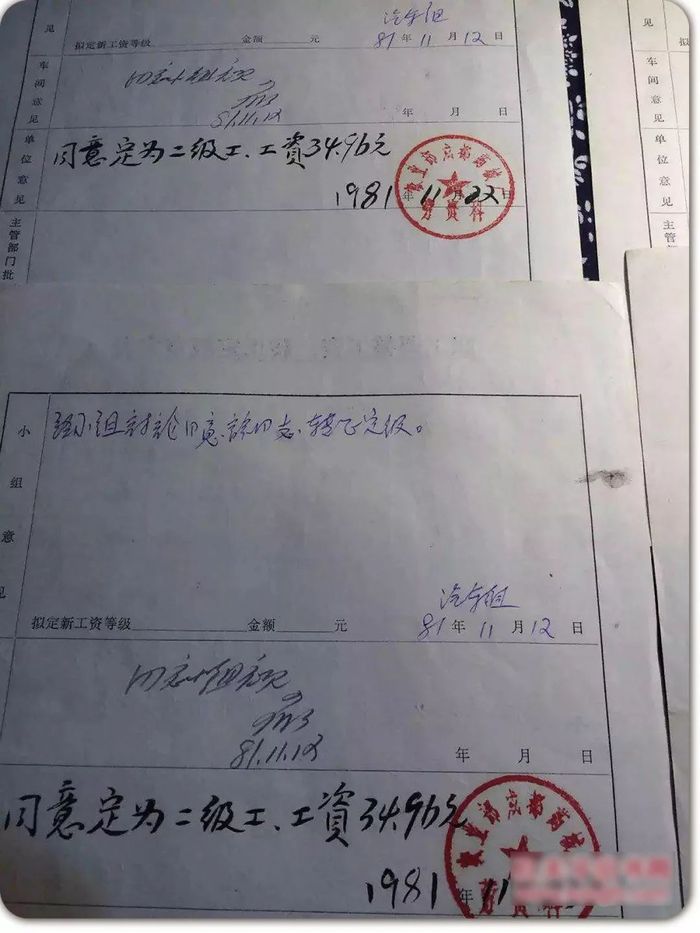 见
汽车组
拟定新工资等级 金额 元 81年11月12日
车间意见
同意小组意见
81.11.12
年 月 日
单位意见
同意定为二级工、工資34.96元
1981年11月22日
劳资科
主管部门批
见
车间意见
单位意见
主管部
小组意见
经小组讨论同意該同志转正定级。
汽车组
拟定新工资等级 金额 元 81年11月12日
同意小组意见
81.11.12
年 月 日
同意定为二级工、工資34.96元
1981年11